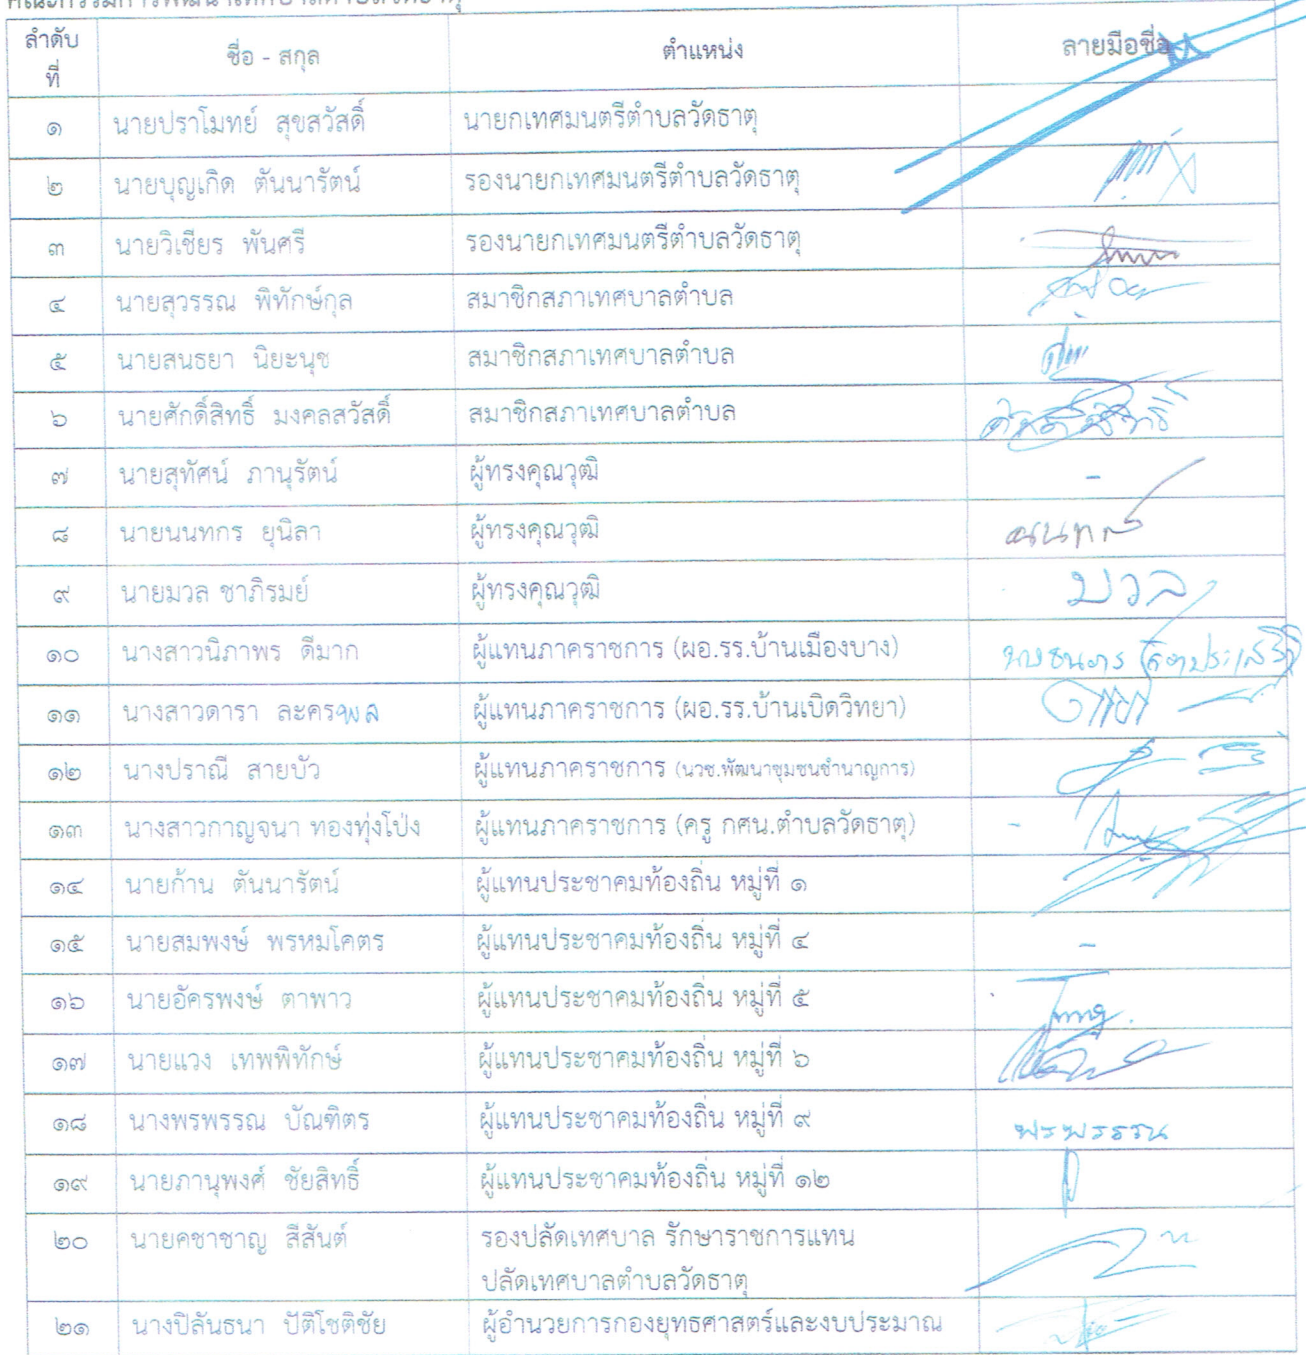 คณะกรรมการพัฒนาเทศบาลตำบลวัดธาตุ
ลำดับที่ ชื่อ - สกุล ตำแหน่ง ลายมือชื่อ
๑ นายปราโมทย์ สุขสวัสดิ์ นายกเทศมนตรีตำบลวัดธาตุ
๒ นายบุญเกิด ตันนารัตน์ รองนายกเทศมนตรีตำบลวัดธาตุ
๓ นายวิเชียร พันศรี รองนายกเทศมนตรีตำบลวัดธาตุ
๔ นายสุวรรณ พิทักษ์กุล สมาชิกสภาเทศบาลตำบล
๕ นายสนธยา นิยะนุช สมาชิกสภาเทศบาลตำบล
๖ นายศักดิ์สิทธิ์ มงคลสวัสดิ์ สมาชิกสภาเทศบาลตำบล ศักดิ์สิทธิ์
๗ นายสุทัศน์ ภานุรัตน์ ผู้ทรงคุณวุฒิ -
๘ นายนนทกร ยุนิลา ผู้ทรงคุณวุฒิ นนทกร
๙ นายมวล ชาภิรมย์ ผู้ทรงคุณวุฒิ มวล
๑๐ นางสาวนิภาพร ดีมาก ผู้แทนภาคราชการ (ผอ.รร.บ้านเมืองบาง)
๑๑ นางสาวดารา ละครพล ผู้แทนภาคราชการ (ผอ.รร.บ้านเบิดวิทยา)
๑๒ นางปราณี สายบัว ผู้แทนภาคราชการ (นวช.พัฒนาชุมชนชำนาญการ)
๑๓ นางสาวกาญจนา ทองทุ่งโป่ง ผู้แทนภาคราชการ (ครู กศน.ตำบลวัดธาตุ)
๑๔ นายก้าน ตันนารัตน์ ผู้แทนประชาคมท้องถิ่น หมู่ที่ ๑
๑๕ นายสมพงษ์ พรหมโคตร ผู้แทนประชาคมท้องถิ่น หมู่ที่ ๔ -
๑๖ นายอัครพงษ์ ตาพาว ผู้แทนประชาคมท้องถิ่น หมู่ที่ ๕
๑๗ นายแวง เทพพิทักษ์ ผู้แทนประชาคมท้องถิ่น หมู่ที่ ๖
๑๘ นางพรพรรณ บัณฑิตร ผู้แทนประชาคมท้องถิ่น หมู่ที่ ๙ พรพรรณ
๑๙ นายภานุพงศ์ ชัยสิทธิ์ ผู้แทนประชาคมท้องถิ่น หมู่ที่ ๑๒
๒๐ นายคชาชาญ สีสันต์ รองปลัดเทศบาล รักษาราชการแทน
ปลัดเทศบาลตำบลวัดธาตุ
๒๑ นางปิลันธนา ปัติโชติชัย ผู้อำนวยการกองยุทธศาสตร์และงบประมาณ